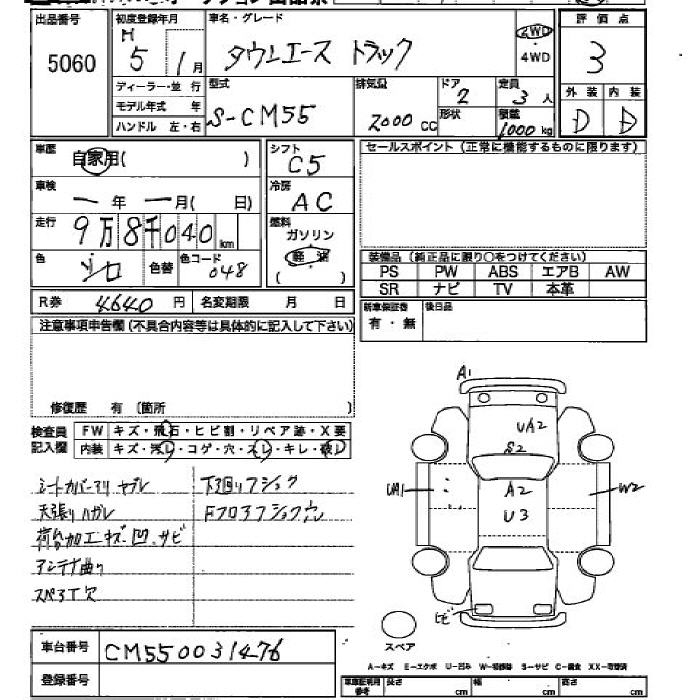 出品番号 初度登録年月 車名・グレード 評価点
5060 H 5 1月 タウンエース トラック 2WD・4WD 3
ディーラー・並行 型式 排気量 ドア 定員 外装 内装
モデル年式 年 S-CM55 2000 CC 2 3人 D D
ハンドル 左・右 形状 積載 1000 kg
車歴 自家用( ) シフト C5 セールスポイント (正常に機能するものに限ります)
車検 ー年ー月( 日) 冷房 AC
走行 9万8千040km 燃料 ガソリン 軽油 ( )
色 シロ 色替 色コード 048 装備品 (純正品に限り○をつけてください)
PS PW ABS エアB AW
SR ナビ TV 本革
R券 4640 円 名変期限 月 日 新車保証書 後日品
有・無
注意事項申告欄 (不具合内容等は具体的に記入して下さい)
修復歴 有 (箇所 )
検査員 FW キズ・飛石・ヒビ割・リペア跡・X要
記入欄 内装 キズ・汚レ・コゲ・穴・スレ・キレ・破レ
シートカバーアリ ヤブレ 下廻りフショク
天張りハガレ Fフロアフショク穴
荷台加工キズ、凹、サビ
アンテナ曲り
スペアT欠
A1
UA2
S2
UA1 A2 W2
U3
ヒビ
スペア
車台番号 CM550031476
登録番号
A-キズ E-エクボ U-凹み W-補修跡 S-サビ C-腐食 XX-交換済
車庫証明用参考 長さ cm 幅 cm 高さ cm